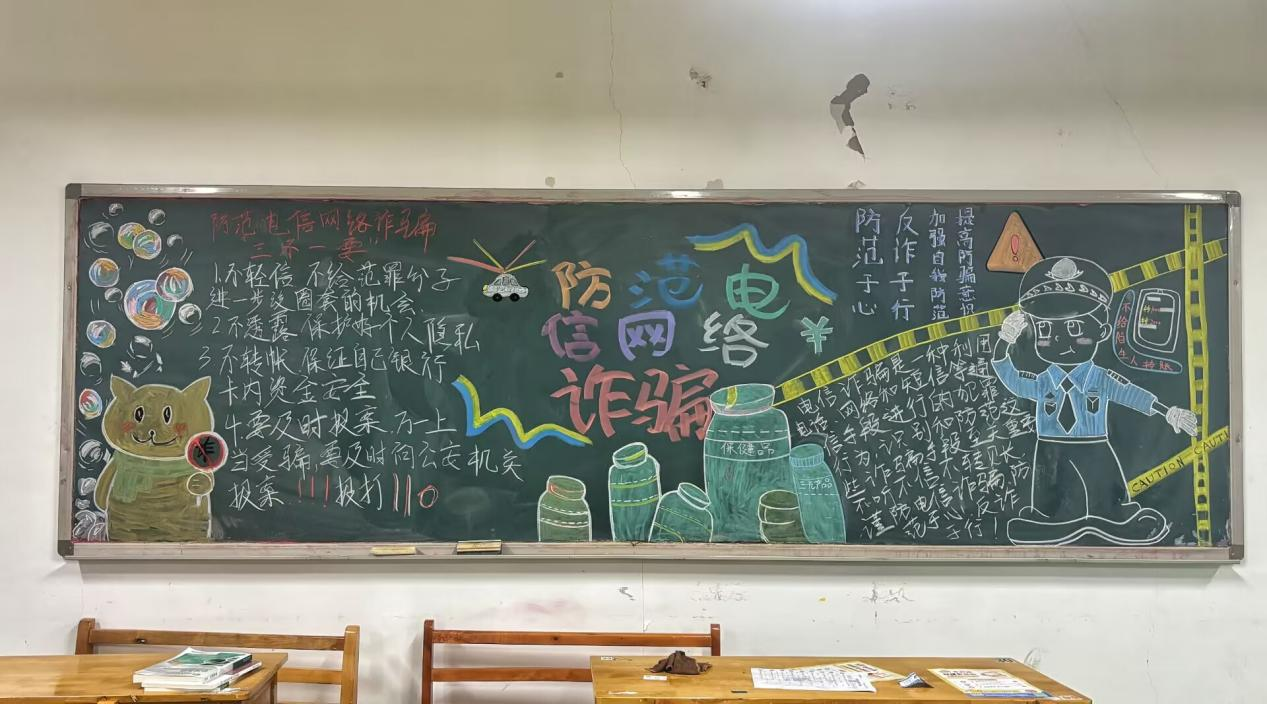 防范电信网络诈骗
三不一要
1.不轻信 不给范罪分子
进一步设圈套的机会
2不透露 保护好个人隐私
3不转帐 保证自己银行
卡内资金安全
4.要及时报案.万一上
当受骗,要及时向公安机关
报案!!!拨打110
防范电
信网络
¥
诈骗
保健品
三无产品
防范于心
反诈于行
加强自我防范
提高防骗意识
电信诈骗是一种利用
电话、网络和短信等通
信手段进行的犯罪
行为,识别和防范这
些诈骗手段至关重要
不听不信不转账
谨防电信诈骗,防
于行!
!
不给陌生人转账
CAUTION CAUTI